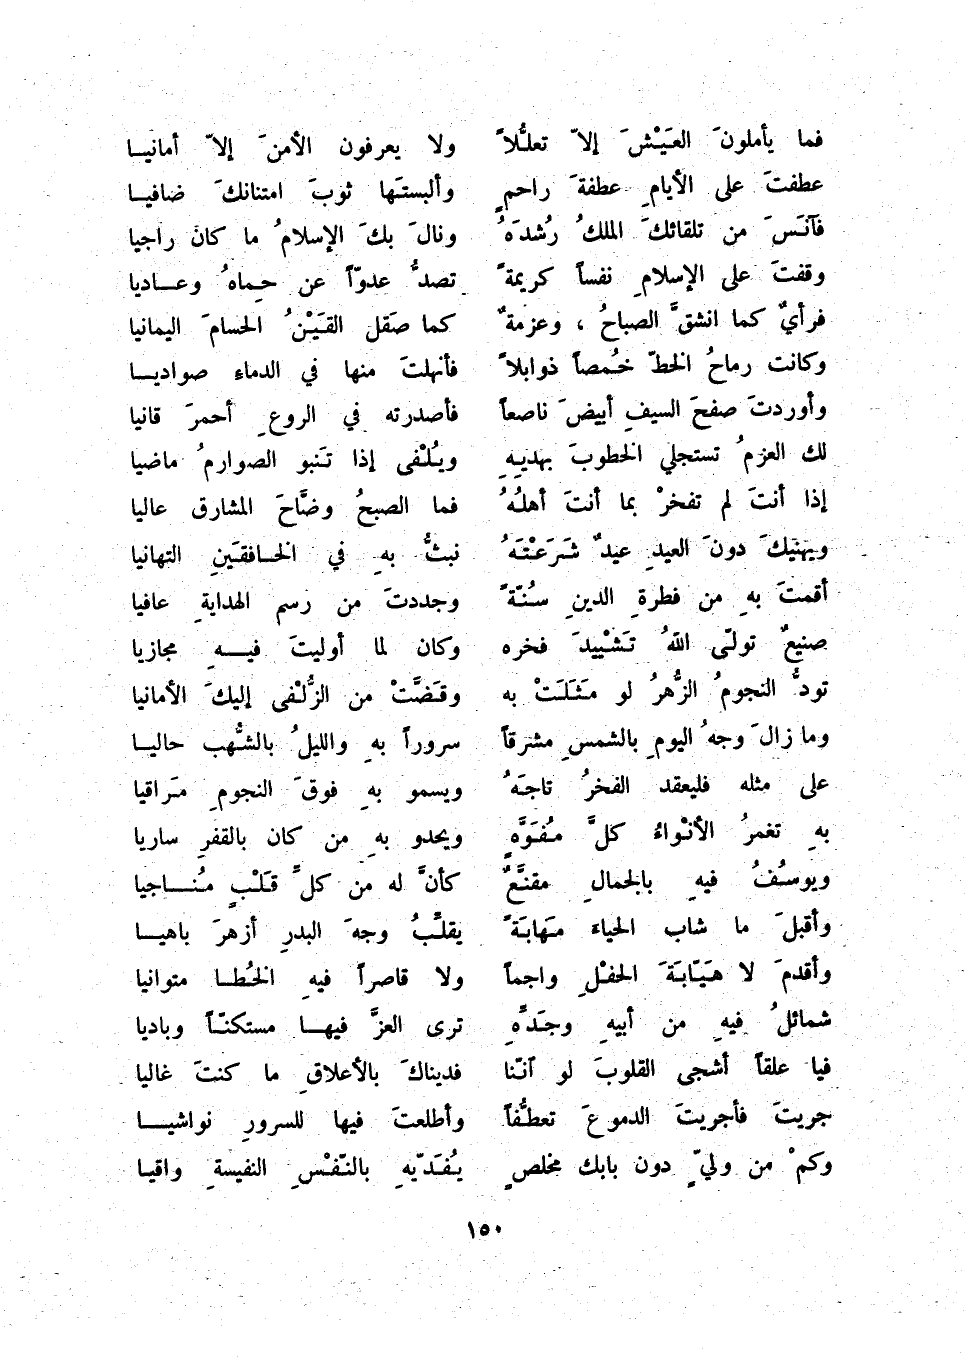 فما يأملونَ العَيْشَ إلاّ تعلُّلاً ولا يعرفون الأمنَ إلاّ أمانيــا
عطفتَ على الأيامِ عطفةَ راحمٍ وألبستَها ثوبَ امتنانكَ ضافيــا
فآنَسَ من تلقائكَ الملكُ رُشدَهُ ونالَ بكَ الإسلامُ ما كان راجيا
وقفتَ على الإسلامِ نفساً كريمةً تصدُّ عدوّاً عن حِماهُ وعــاديا
فرأيٌ كما انشقَّ الصباحُ ، وعزمةٌ كما صَقل القَيْنُ الحسامَ اليمانيا
وكانت رماحُ الخطّ خُمصاً ذوابلاً فأنهلتَ منها في الدماء صواديــا
وأوردتَ صفحَ السيفِ أبيضَ ناصعاً فأصدرته في الروعِ أحمرَ قانيا
لك العزمُ تستجلي الخطوبَ بهديِهِ ويُلْفى إذا تَنبو الصوارمُ ماضيا
إذا أنتَ لم تفخرْ بما أنتَ أهلُهُ فما الصبحُ وضَّاحَ المشارق عاليا
ويهنيكَ دونَ العيدِ عيدٌ شَرَعْتَهُ نبثُّ بهِ في الخــافقَينِ التهانيا
أقمتَ بهِ من فطرةِ الدينِ سُنّةً وجددتَ من رسم الهدايةِ عافيا
صنيعٌ تولّى اللهُ تَشْييدَ فخره وكان لما أوليتَ فيــهِ مجازيا
تودُّ النجومُ الزُّهرُ لو مَثَلَتْ به وقَضَّتْ من الزُّلْفى إليكَ الأمانيا
وما زالَ وجهُ اليومِ بالشمسِ مشرقاً سروراً بهِ والليلُ بالشُّهب حاليــا
على مثله فليعقد الفخرُ تاجَهُ ويسمو بهِ فوقَ النجومِ مَراقيا
بهِ تغمرُ الأنْواءُ كلَّ مُفَوَّهٍ ويحدو بهِ من كان بالقفرِ ساريا
ويوسُفُ فيهِ بالجمالِ مقنَّعٌ كأنَّ له من كلِّ قَلْبٍ مُنــاجيا
وأقبلَ ما شاب الحياء مَهابَةً يقلِّبُ وجهَ البدرِ أزهرَ باهيــا
وأقدمَ لا هَيّابَةَ الحفْلِ واجماً ولا قاصراً فيهِ الخُطــا متوانيا
شمائلُ فيهِ من أبيهِ وجَدِّهِ ترى العزَّ فيهــا مستكنّــاً وباديا
فيا علقاً أشجى القلوبَ لو أنّنا فديناكَ بالأعلاقِ ما كنتَ غاليا
جريتَ فأجريتَ الدموعَ تعطُّفاً وأطلعتَ فيها للسرورِ نواشيــا
وكمْ من وليٍّ دون بابك مخلصٍ يُفَدّيهِ بالنّفْسِ النفيسةِ واقيا
١٥٠